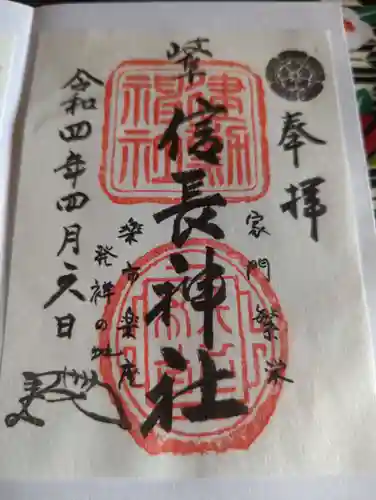 奉拝
家門繁栄
岐阜
信長神社
楽市楽座
発祥の地
令和四年四月六日
建勲
神社